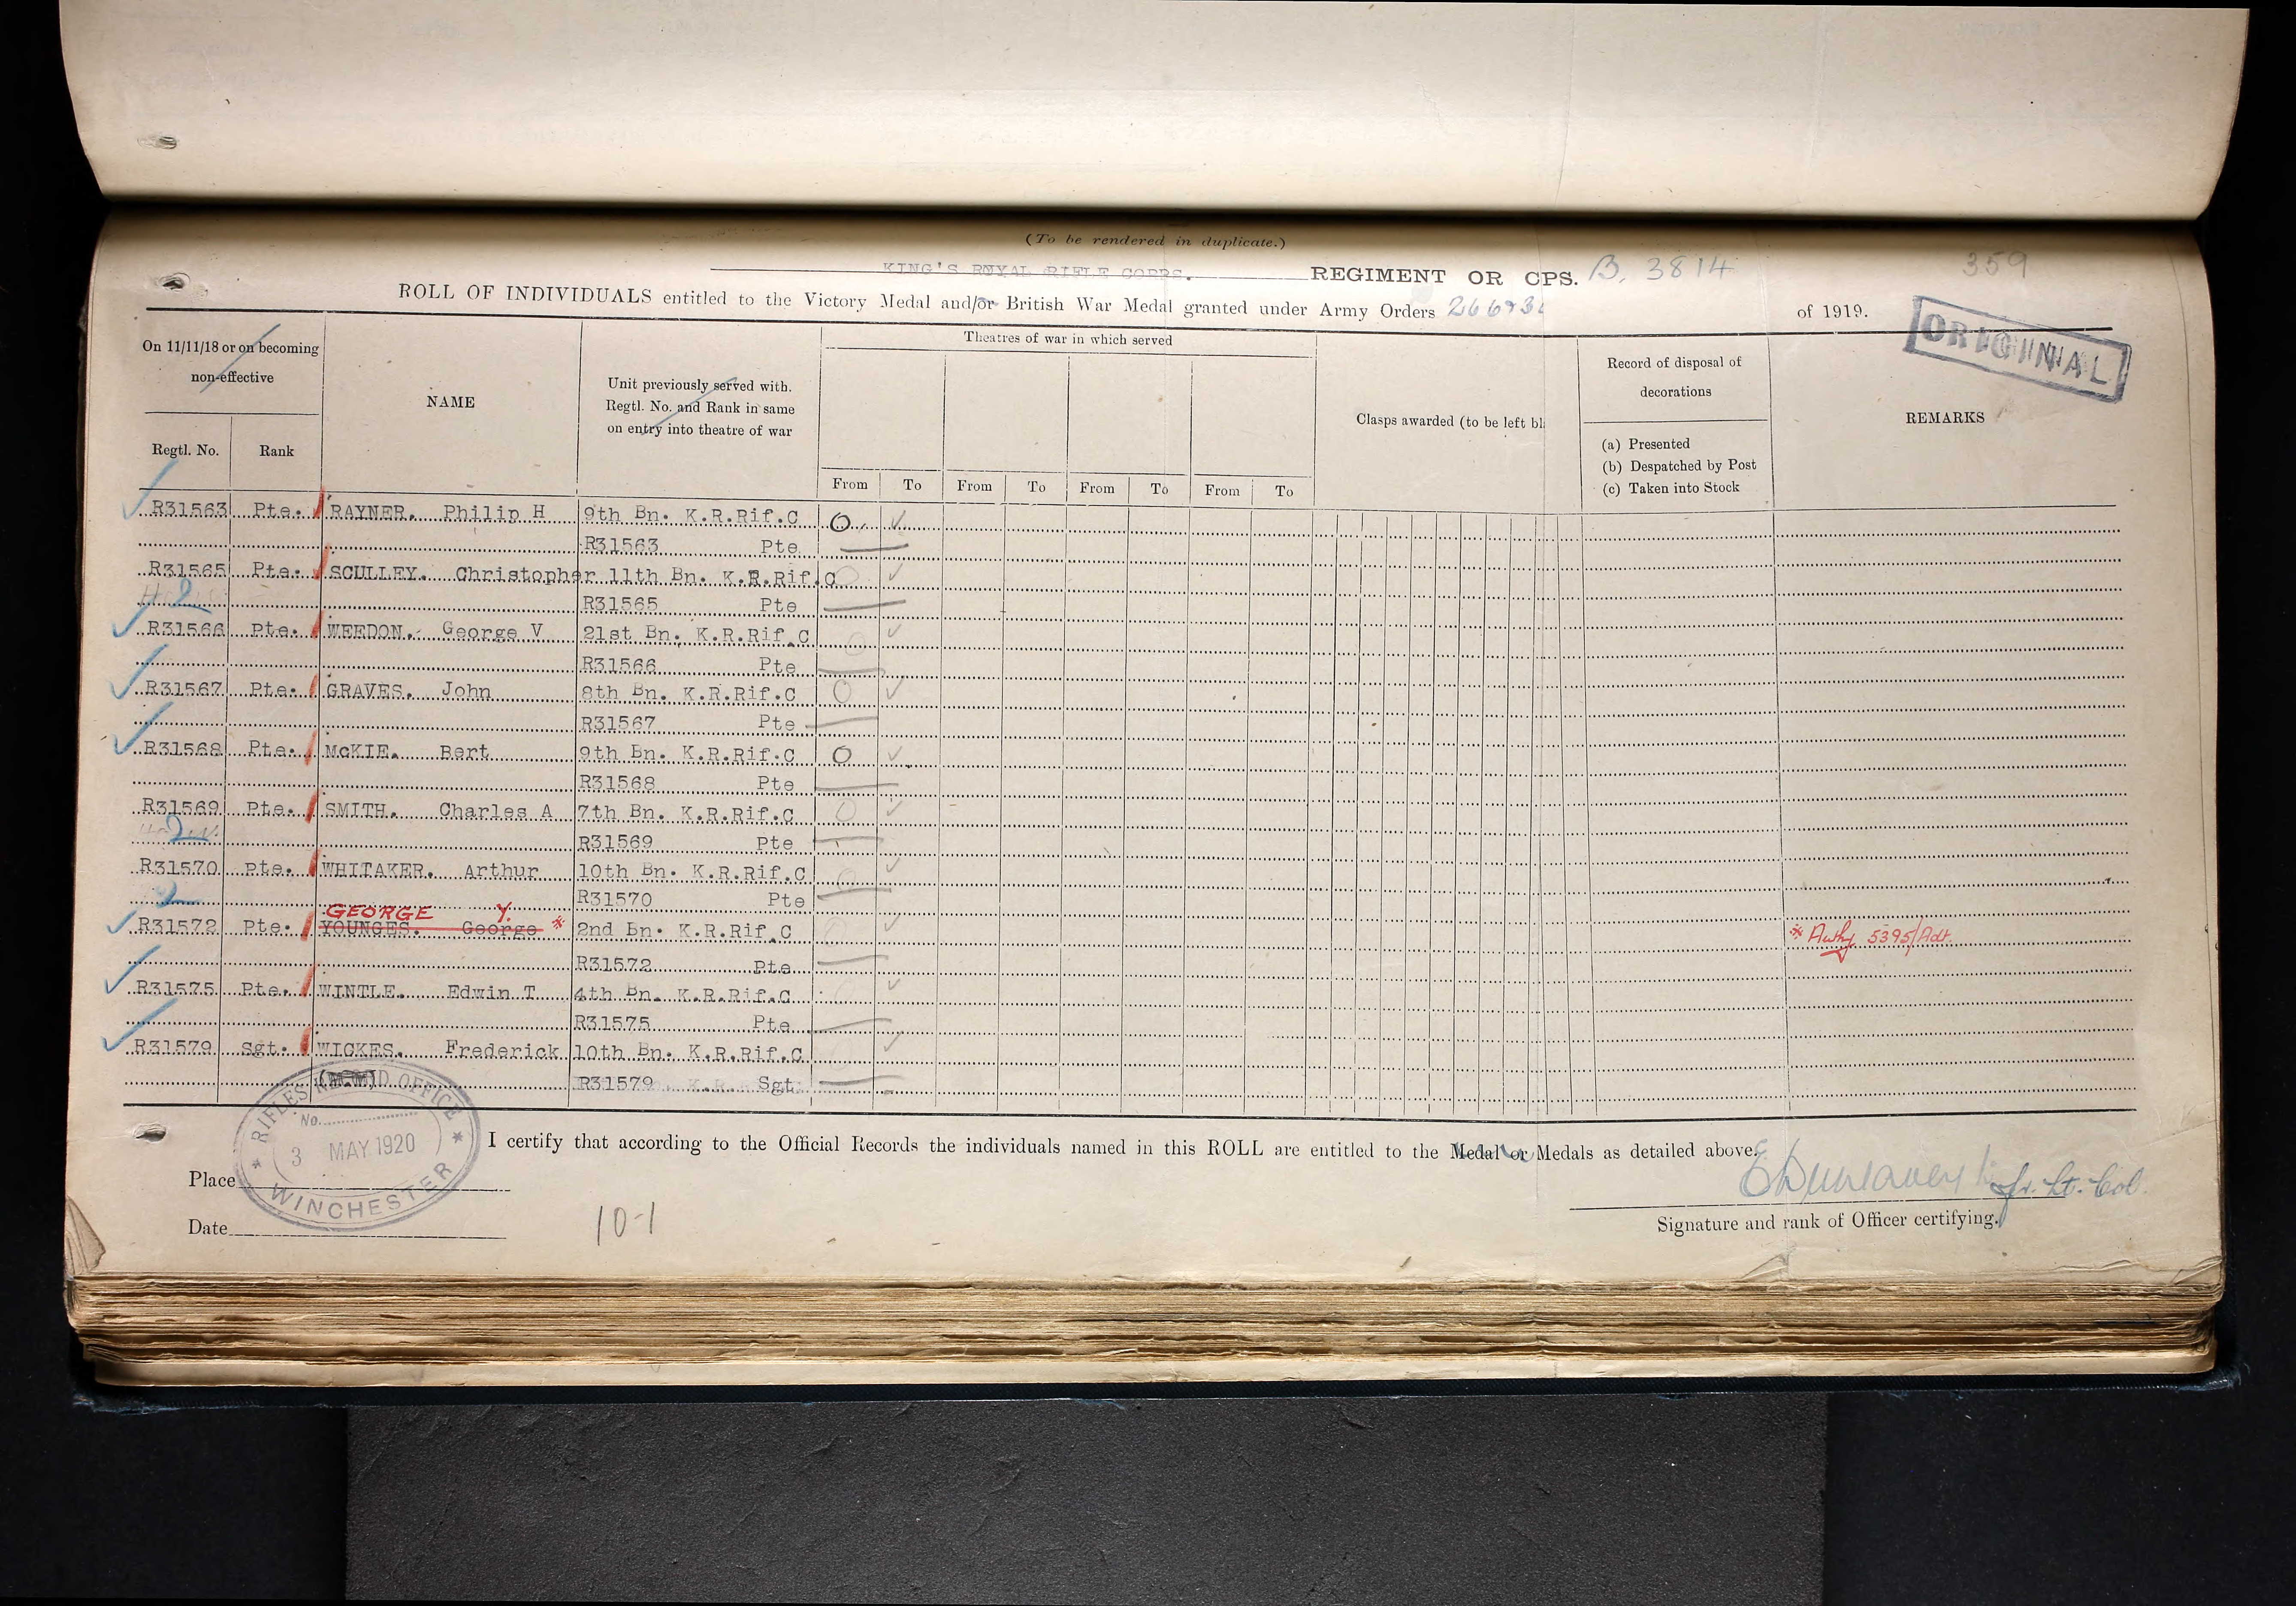 (To be rendered in duplicate.)
KING'S ROYAL RIFLE CORPS. REGIMENT OR CPS. B. 3814 359
ROLL OF INDIVIDUALS entitled to the Victory Medal and/or British War Medal granted under Army Orders of 1919.
ORIGINAL
On 11/11/18 or on becoming non-effective
Regtl. No. Rank
NAME
Unit previously served with.
Regtl. No. and Rank in same
on entry into theatre of war
Theatres of war in which served
From To From To From To From To
Clasps awarded (to be left
Record of disposal of
decorations
(a) Presented
(b) Despatched by Post
(c) Taken into Stock
REMARKS
R31563 Pte. RAYNER. Philip H 9th Bn. K.R.Rif.C O
R31563 Pte
R31565 Pte. SCULLEY. Christopher 11th Bn. K.R.Rif.C O
2 R31565 Pte
R31566 Pte. WEEDON. George V 21st Bn. K.R.Rif.C O
R31566 Pte
R31567 Pte. GRAVES. John 8th Bn. K.R.Rif.C O
R31567 Pte
R31568 Pte. McKIE. Bert 9th Bn. K.R.Rif.C O
R31568 Pte
R31569 Pte. SMITH. Charles A 7th Bn. K.R.Rif.C O
2 R31569 Pte
R31570 Pte. WHITAKER. Arthur 10th Bn. K.R.Rif.C O
2 R31570 Pte
GEORGE Y.
R31572 Pte. YOUNGES. George * 2nd Bn. K.R.Rif.C * Authy 5395/Adt.
R31572 Pte
R31575 Pte. WINTLE. Edwin T 4th Bn. K.R.Rif.C
R31575 Pte
R31579 Sgt. WICKES. Frederick 10th Bn. K.R.Rif.C
R31579 Sgt
RIFLES RECORD OFFICE
No.
3 MAY 1920
* WINCHESTER *
I certify that according to the Official Records the individuals named in this ROLL are entitled to the Medal or Medals as detailed above.
Place
fr. Lt. Col.
Date
10-1
Signature and rank of Officer certifying.